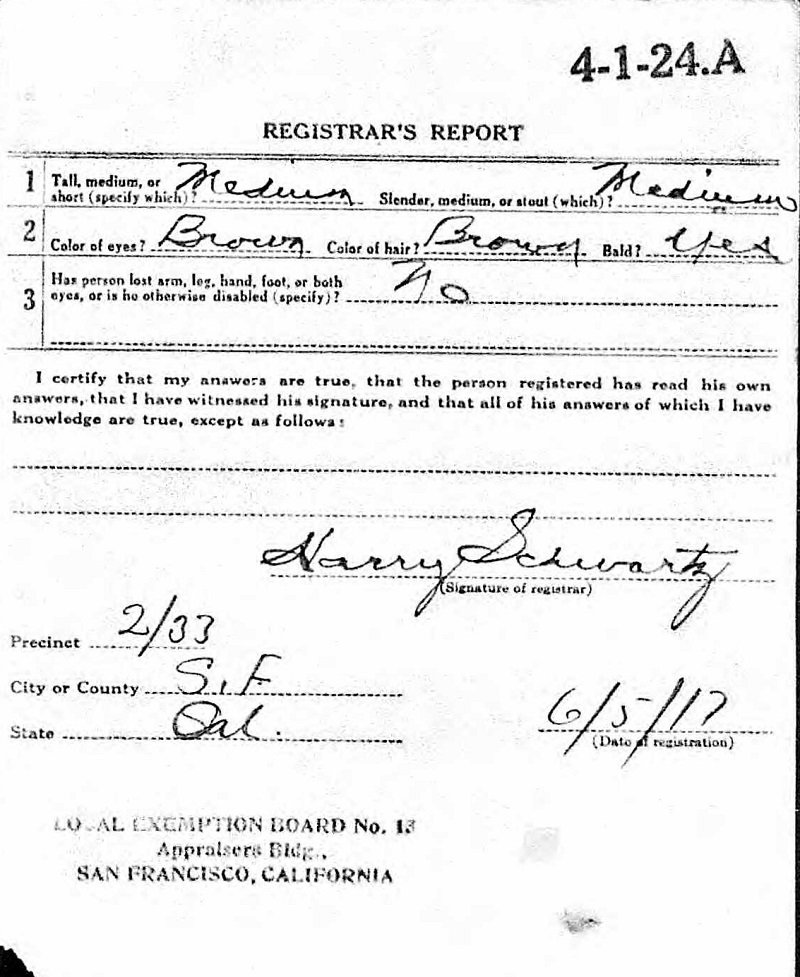 4-1-24.A
REGISTRAR'S REPORT
1 Tall, medium, or short (specify which)? Medium Slender, medium, or stout (which)? Medium
2 Color of eyes? Brown Color of hair? Brown Bald? Yes
3 Has person lost arm, leg, hand, foot, or both
eyes, or is he otherwise disabled (specify)? No
I certify that my answers are true, that the person registered has read his own
answers, that I have witnessed his signature, and that all of his answers of which I have
knowledge are true, except as follows:
Harry Schwartz
(Signature of registrar)
Precinct 2/33
City or County S.F.
State Cal.
6/5/17
(Date of registration)
LOCAL EXEMPTION BOARD No. 13
Appraisers Bldg.,
SAN FRANCISCO, CALIFORNIA